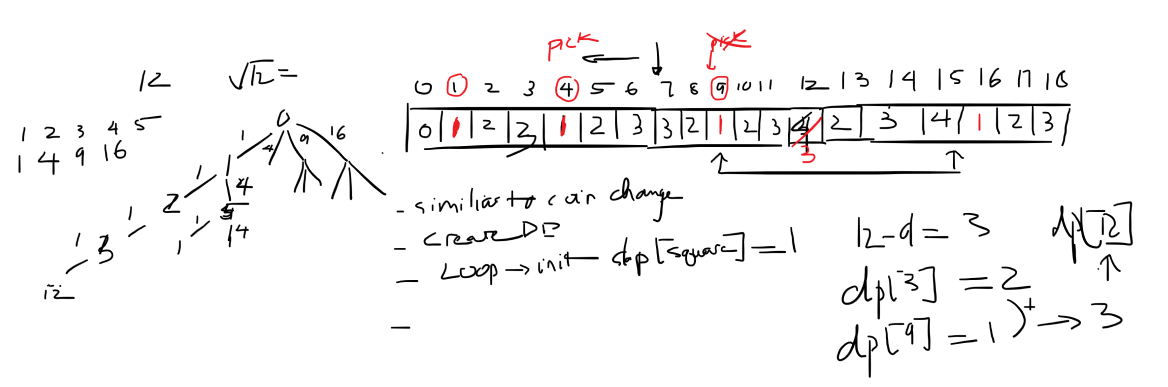 12 √12 =
1 2 3 4 5
1 4 9 16
0
1 4 9 16
1 1
1 4
2
1 3
1 4
12
PICK
0 1 2 3 4 5 6 7 8 9 10 11 12 13 14 15 16 17 18
0 1 2 3 1 2 3 3 2 1 2 3 2 3 4 1 2 3
3
- similiar to coin change
- create DP
- Loop → init dp[square] = 1
-
12-9 = 3 dp[12]
dp[3] = 2
dp[9] = 1 )+ → 3